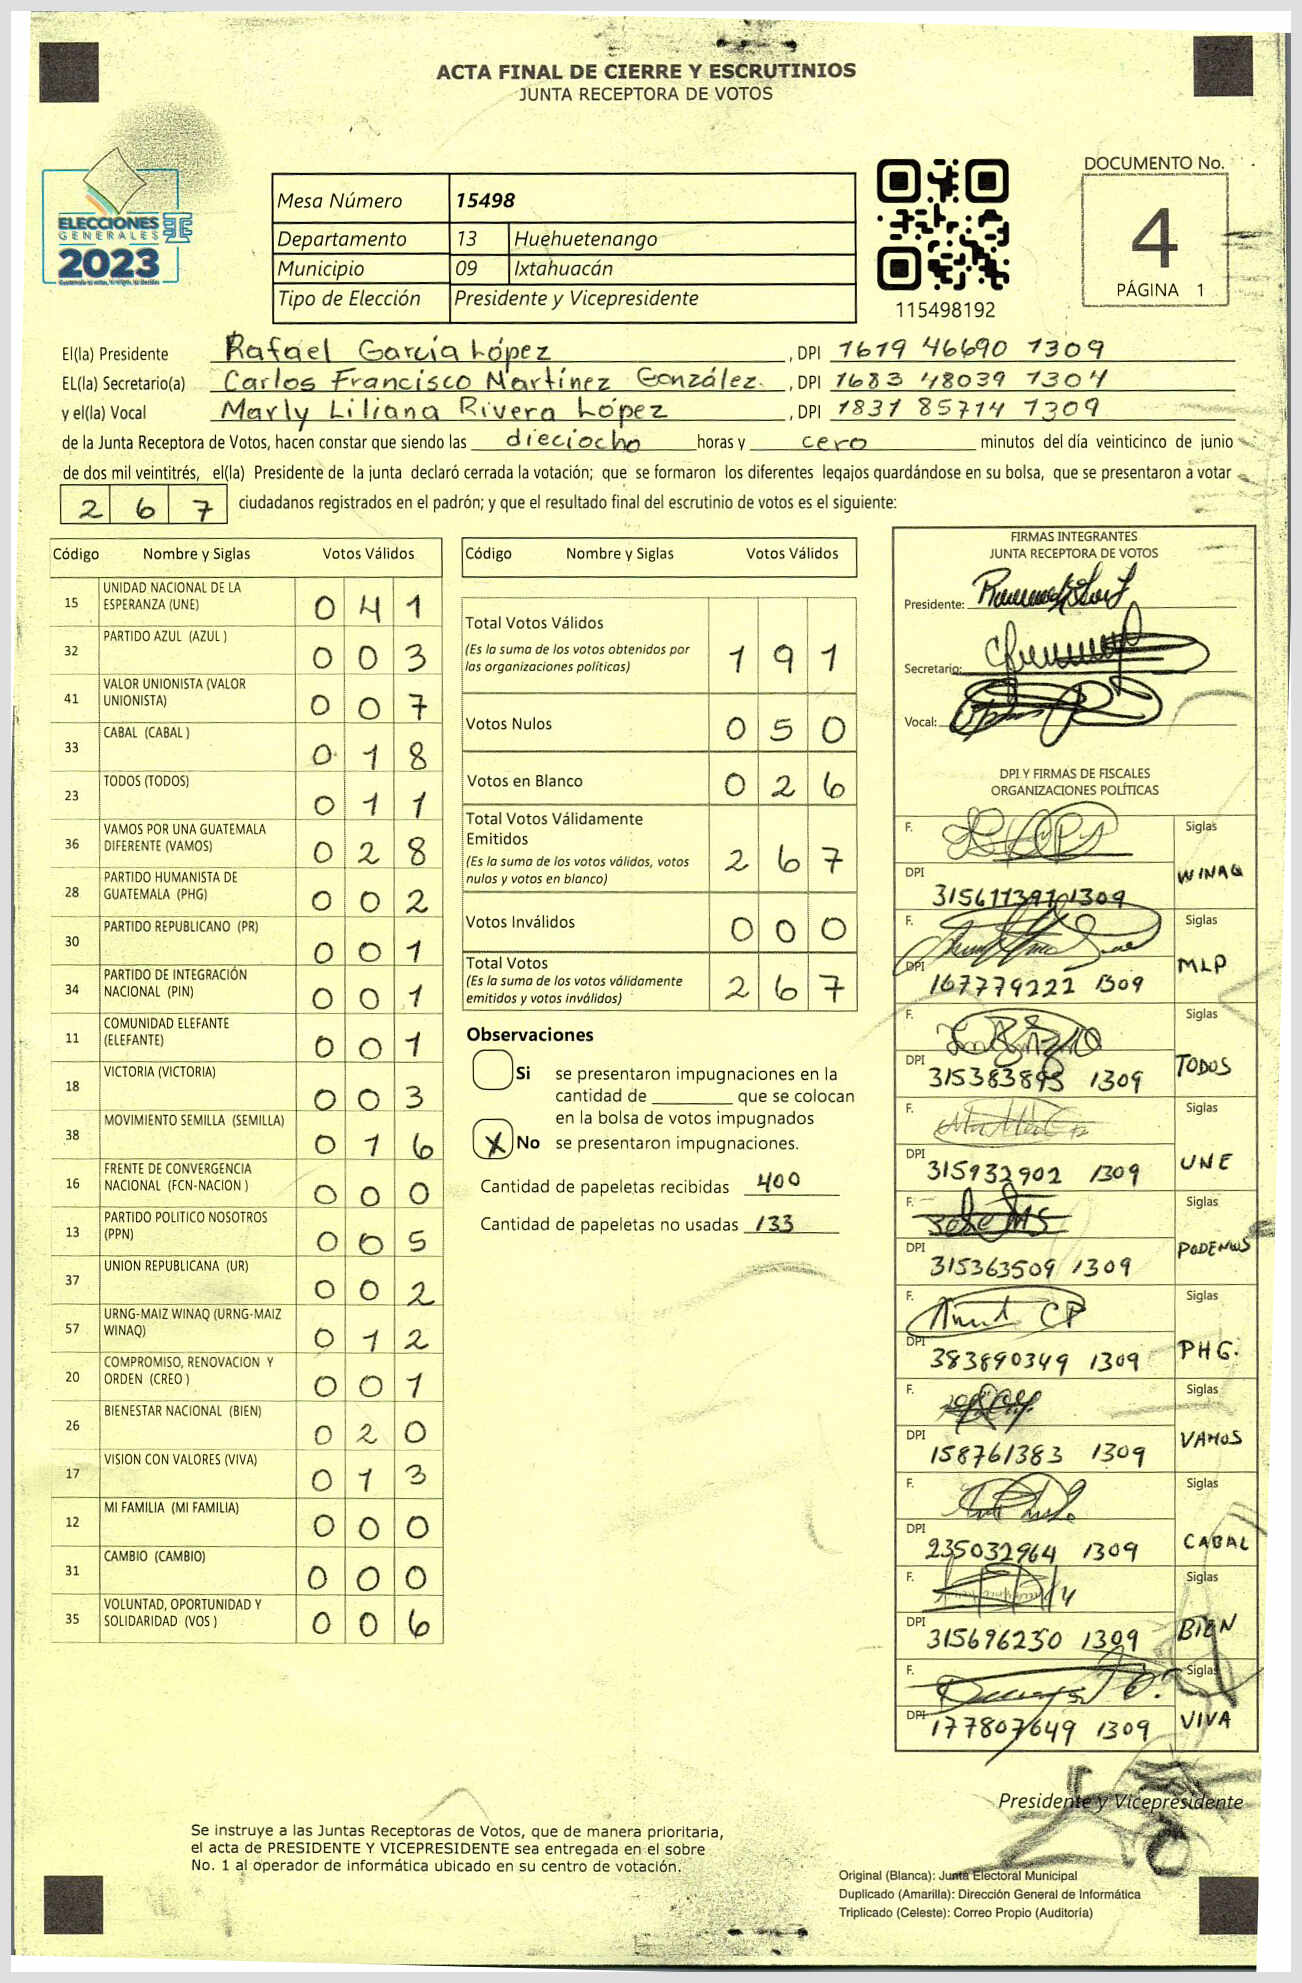 ACTA FINAL DE CIERRE Y ESCRUTINIOS
JUNTA RECEPTORA DE VOTOS
DOCUMENTO No.
4
PÁGINA 1
ELECCIONES
GENERALES
2023
Mesa Número 15498
Departamento 13 Huehuetenango
Municipio 09 Ixtahuacán
Tipo de Elección Presidente y Vicepresidente
115498192
El(la) Presidente Rafael García López , DPI 1619 46690 1309
EL(la) Secretario(a) Carlos Francisco Martínez González. , DPI 1683 48039 1304
y el(la) Vocal Marly Liliana Rivera López , DPI 1831 85714 1309
de la Junta Receptora de Votos, hacen constar que siendo las dieciocho horas y cero minutos del día veinticinco de junio
de dos mil veintitrés, el(la) Presidente de la junta declaró cerrada la votación; que se formaron los diferentes legajos guardándose en su bolsa, que se presentaron a votar
2 6 7 ciudadanos registrados en el padrón; y que el resultado final del escrutinio de votos es el siguiente:
Código Nombre y Siglas Votos Válidos
15 UNIDAD NACIONAL DE LA
ESPERANZA (UNE) 0 4 1
32 PARTIDO AZUL (AZUL ) 0 0 3
41 VALOR UNIONISTA (VALOR
UNIONISTA) 0 0 7
33 CABAL (CABAL ) 0 1 8
23 TODOS (TODOS) 0 1 1
36 VAMOS POR UNA GUATEMALA
DIFERENTE (VAMOS) 0 2 8
28 PARTIDO HUMANISTA DE
GUATEMALA (PHG) 0 0 2
30 PARTIDO REPUBLICANO (PR) 0 0 1
34 PARTIDO DE INTEGRACIÓN
NACIONAL (PIN) 0 0 1
11 COMUNIDAD ELEFANTE
(ELEFANTE) 0 0 1
18 VICTORIA (VICTORIA) 0 0 3
38 MOVIMIENTO SEMILLA (SEMILLA) 0 1 6
16 FRENTE DE CONVERGENCIA
NACIONAL (FCN-NACION ) 0 0 0
13 PARTIDO POLITICO NOSOTROS
(PPN) 0 0 5
37 UNION REPUBLICANA (UR) 0 0 2
57 URNG-MAIZ WINAQ (URNG-MAIZ
WINAQ) 0 1 2
20 COMPROMISO, RENOVACION Y
ORDEN (CREO ) 0 0 1
26 BIENESTAR NACIONAL (BIEN) 0 2 0
17 VISION CON VALORES (VIVA) 0 1 3
12 MI FAMILIA (MI FAMILIA) 0 0 0
31 CAMBIO (CAMBIO) 0 0 0
35 VOLUNTAD, OPORTUNIDAD Y
SOLIDARIDAD (VOS ) 0 0 6
Código Nombre y Siglas Votos Válidos
Total Votos Válidos
(Es la suma de los votos obtenidos por
las organizaciones políticas) 1 9 1
Votos Nulos 0 5 0
Votos en Blanco 0 2 6
Total Votos Válidamente
Emitidos
(Es la suma de los votos válidos, votos
nulos y votos en blanco) 2 6 7
Votos Inválidos 0 0 0
Total Votos
(Es la suma de los votos válidamente
emitidos y votos inválidos) 2 6 7
Observaciones
Si se presentaron impugnaciones en la
cantidad de ________ que se colocan
en la bolsa de votos impugnados
X No se presentaron impugnaciones.
Cantidad de papeletas recibidas 400
Cantidad de papeletas no usadas 133
FIRMAS INTEGRANTES
JUNTA RECEPTORA DE VOTOS
Presidente:
Secretario:
Vocal:
DPI Y FIRMAS DE FISCALES
ORGANIZACIONES POLÍTICAS
F. Siglas
DPI 315611397 1309 WINAQ
F. Siglas
DPI 167779222 1309 MLP
F. Siglas
DPI 315383895 1309 TODOS
F. Siglas
DPI 315932902 1309 UNE
F. Siglas
DPI 315363509 1309 PODEMOS
F. Siglas
DPI 383890349 1309 PHG.
F. Siglas
DPI 158761383 1309 VAMOS
F. Siglas
DPI 235032964 1309 CABAL
F. Siglas
DPI 315696250 1309 BIEN
F. Siglas
DPI 177807649 1309 VIVA
Presidente y Vicepresidente
Se instruye a las Juntas Receptoras de Votos, que de manera prioritaria,
el acta de PRESIDENTE Y VICEPRESIDENTE sea entregada en el sobre
No. 1 al operador de informática ubicado en su centro de votación.
Original (Blanca): Junta Electoral Municipal
Duplicado (Amarilla): Dirección General de Informática
Triplicado (Celeste): Correo Propio (Auditoría)